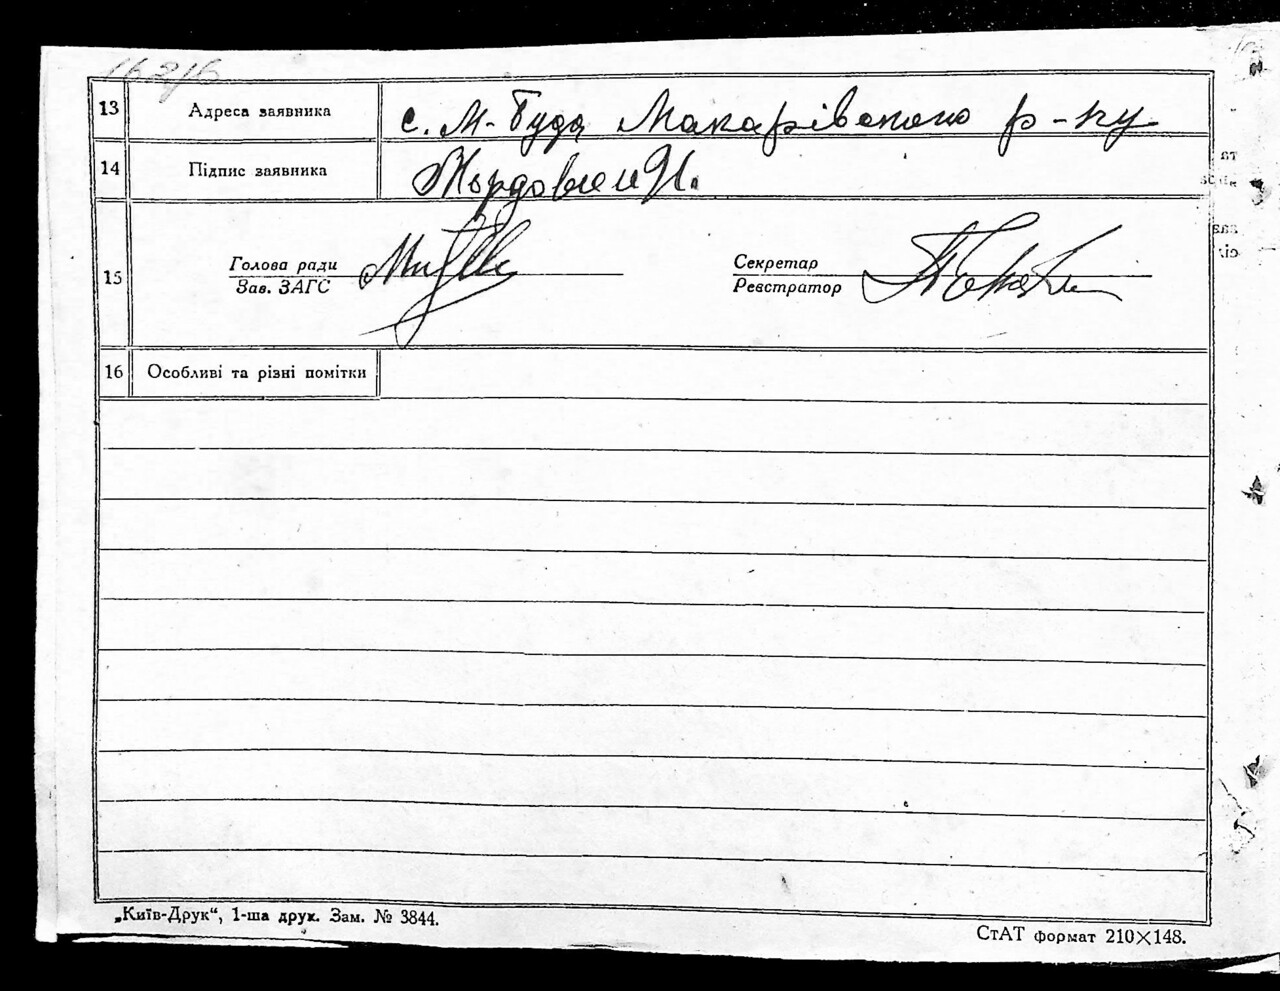 16216
13 Адреса заявника с. М-Буда Макарівського р-ну
14 Підпис заявника
15 Голова ради
Зав. ЗАГС
Секретар
Реєстратор
16 Особливі та різні помітки
„Київ-Друк“, 1-ша друк. Зам. № 3844.
СтАТ формат 210×148.